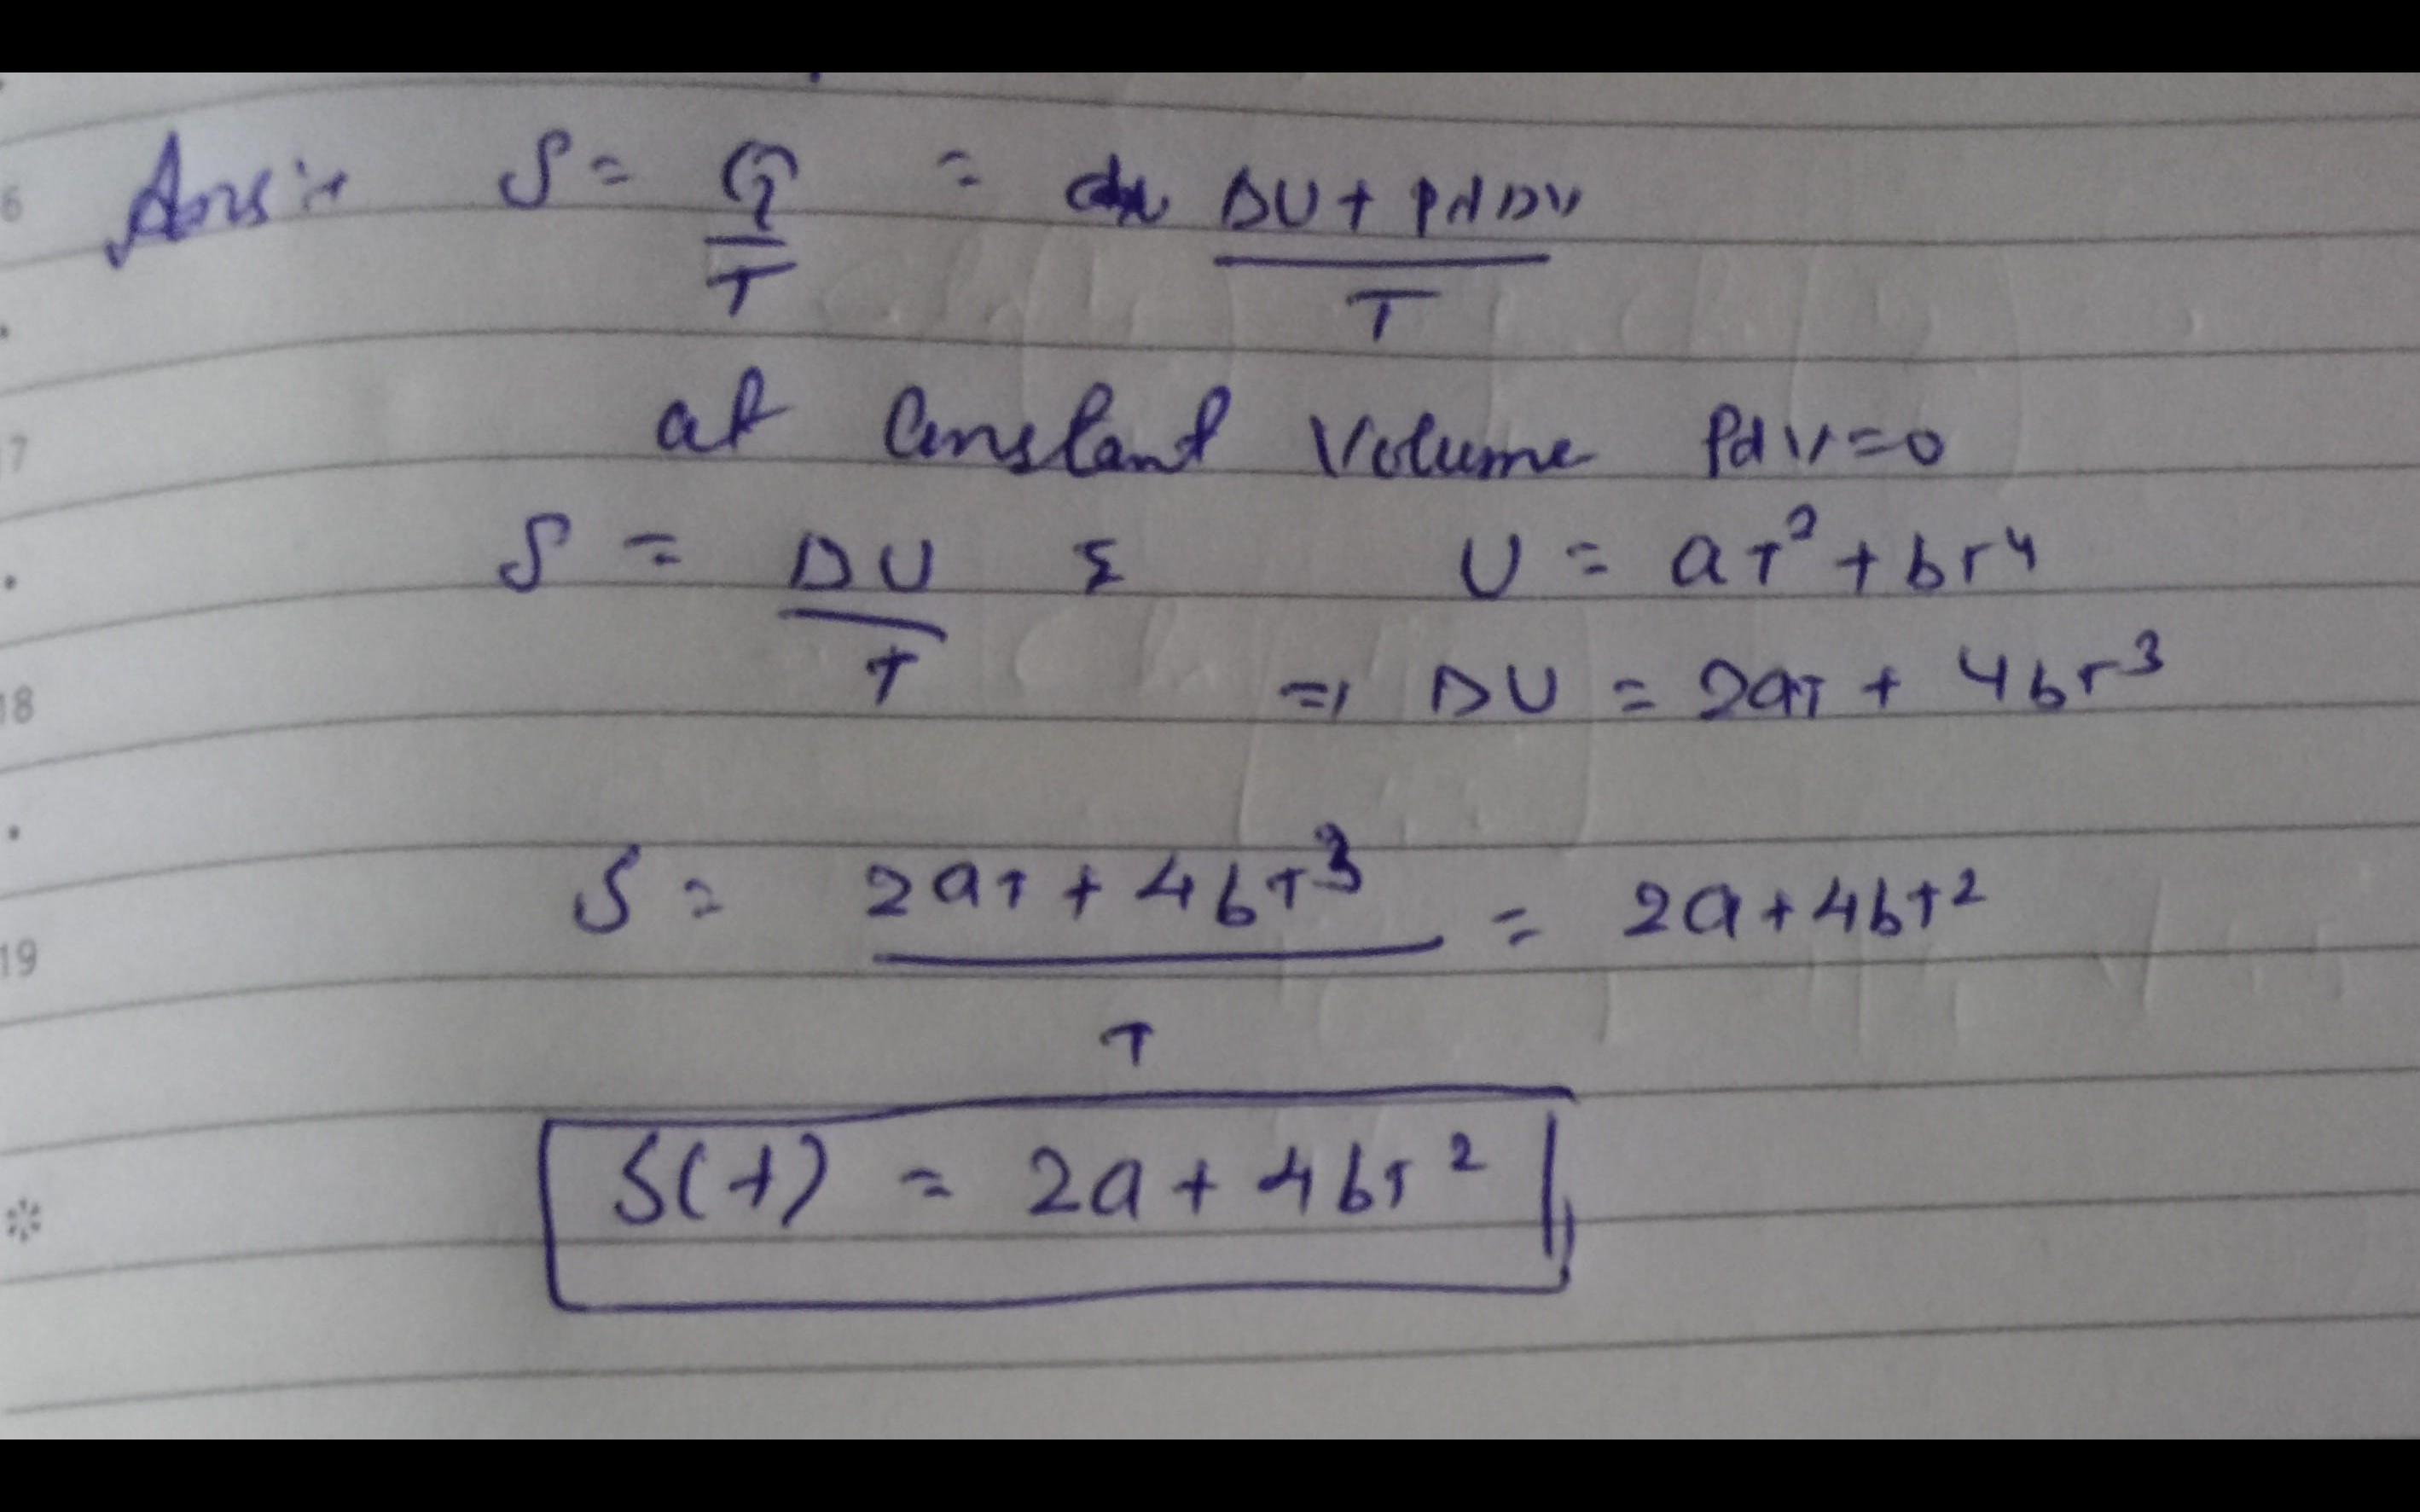 Ans:→ S = Q/T = ΔU + PdΔV / T
at Constant Volume PdV=0
S = ΔU/T & U = aT² + bT⁴
⇒ ΔU = 2aT + 4bT³
S = 2aT + 4bT³ / T = 2a+4bT²
S(T) = 2a + 4bT²
6
7
18
19